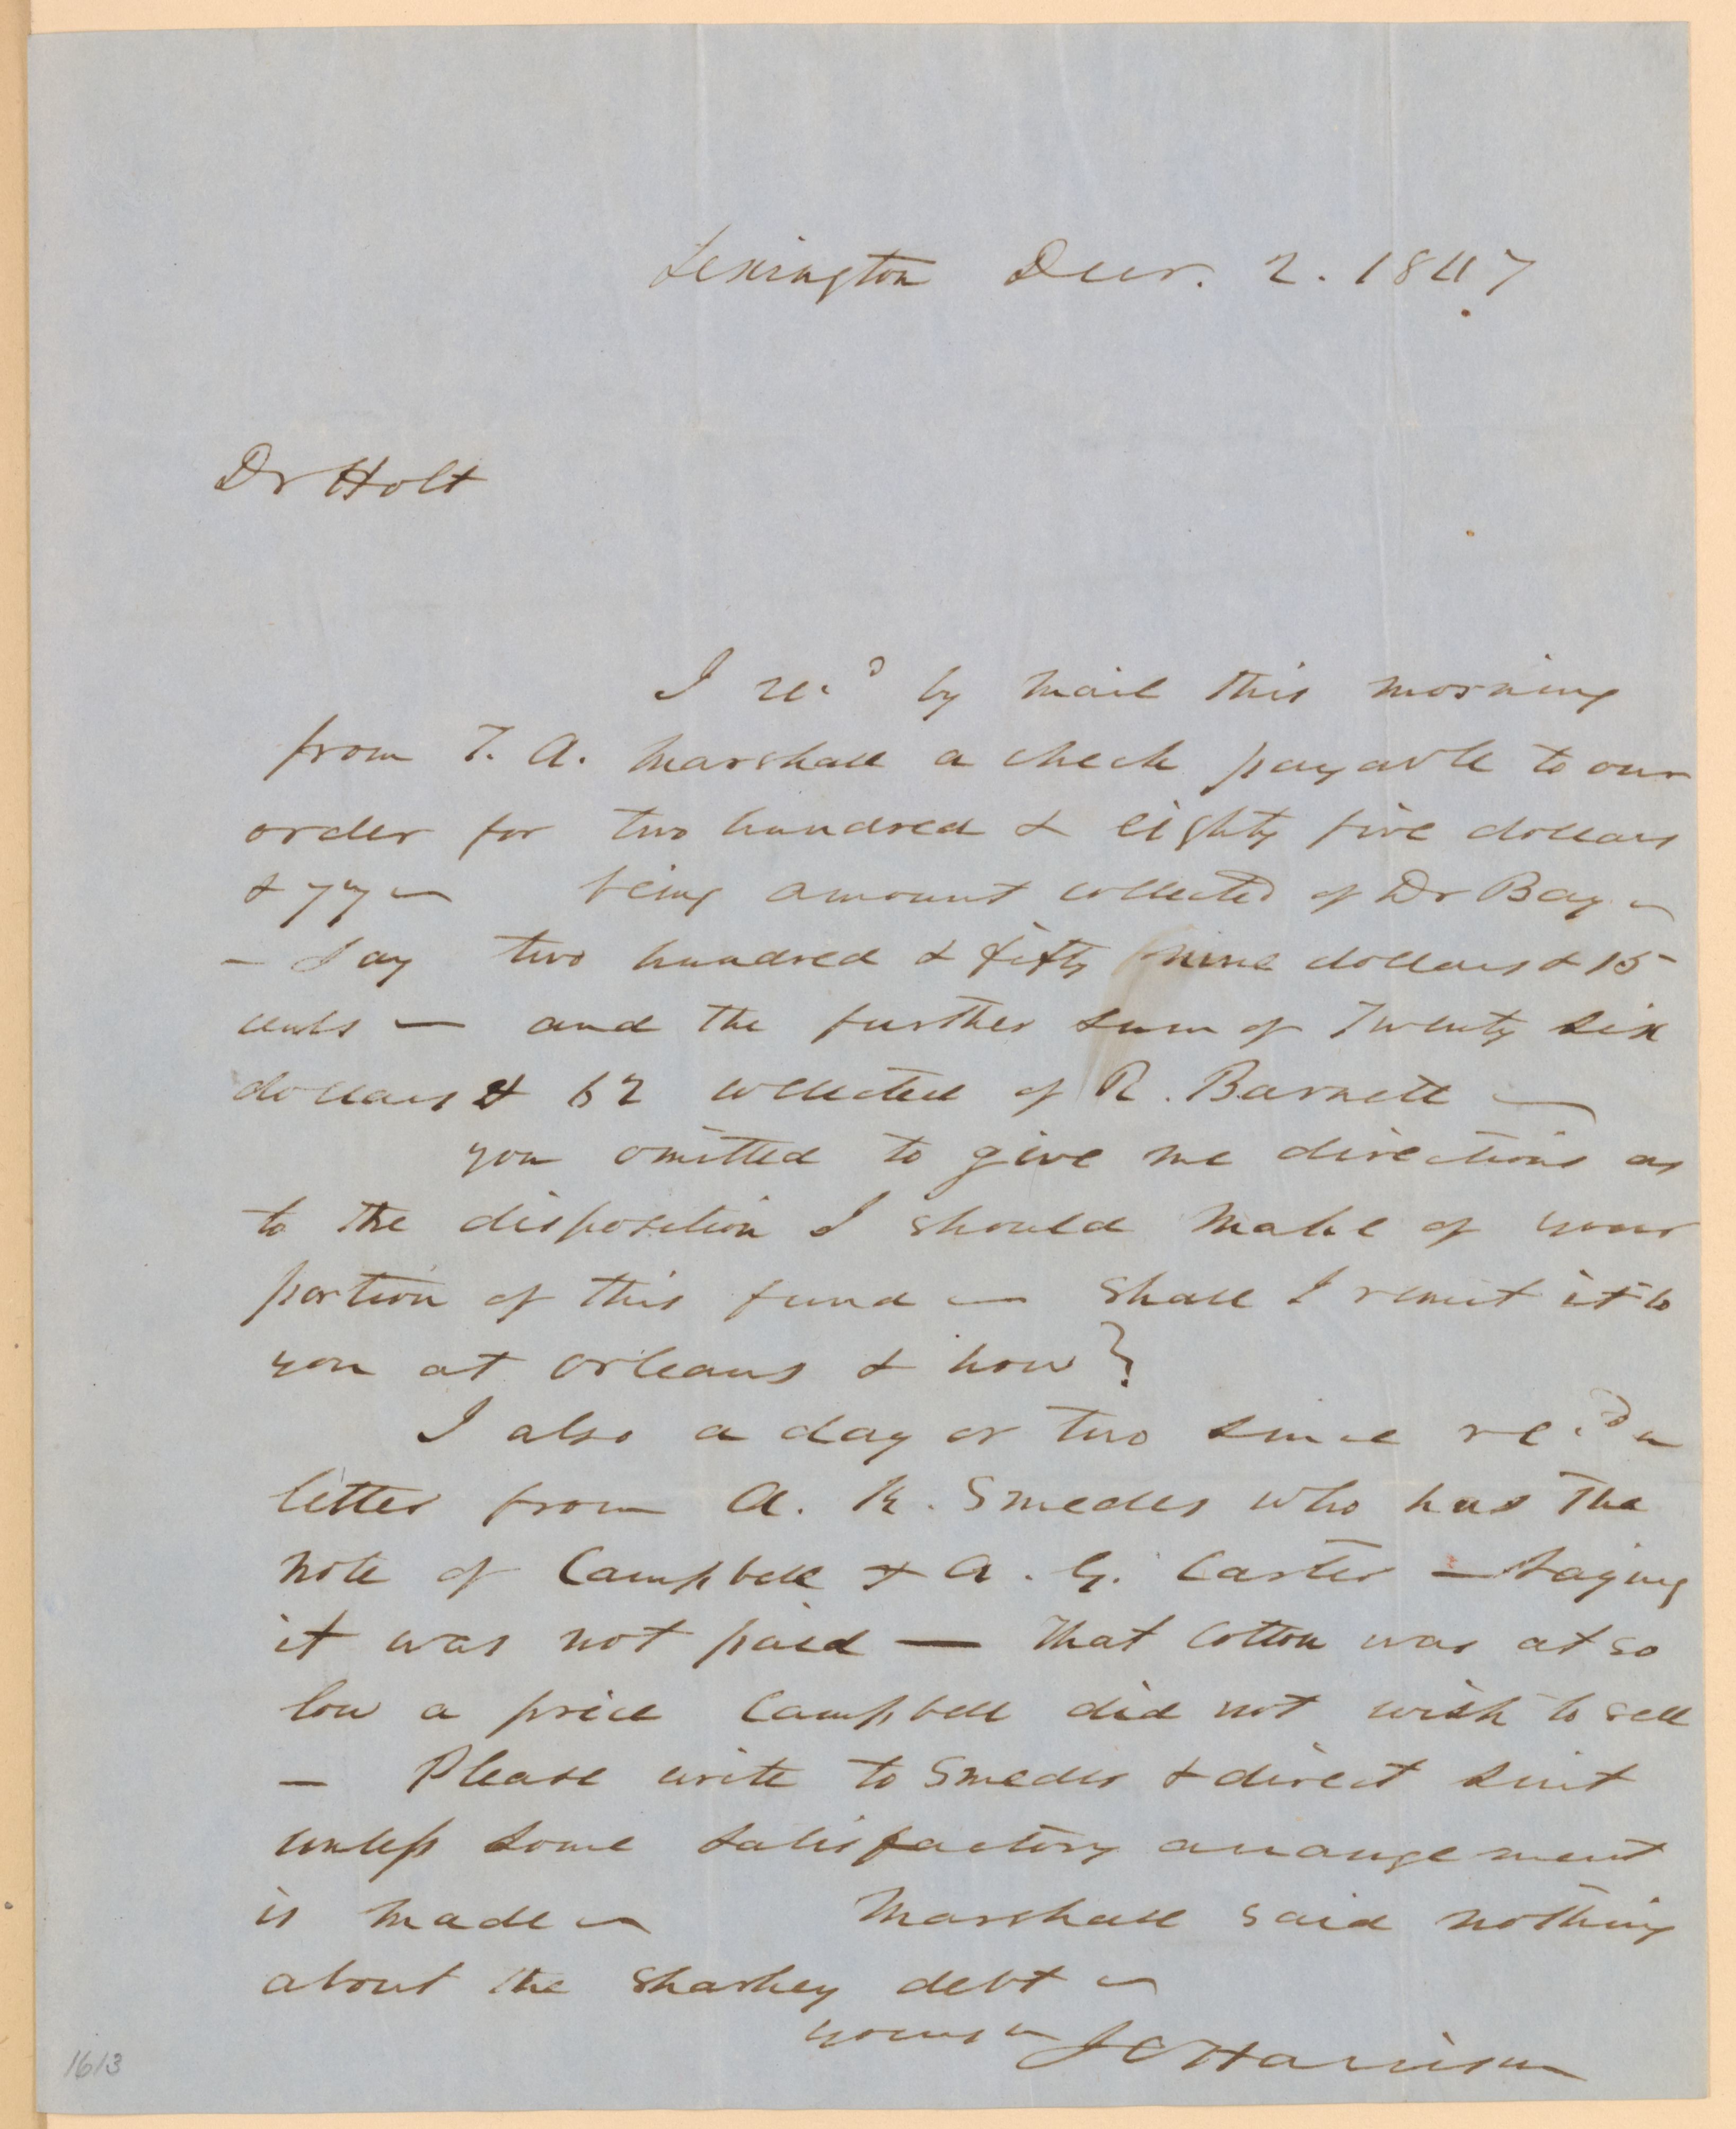 Lexington Decr. 2. 1847
Dr Holt
I recd by mail this morning
from T. A. Marshall a check payable to our
order for two hundred & eighty five dollars
& 77 — being amount collected of Dr Bay —
— Say two hundred & fifty nine dollars & 15
cents — and the further sum of Twenty six
dollars & 62 collected of R. Barnett —
you omitted to give me directions as
to the disposition I should make of your
portion of this fund — Shall I remit it to
you at Orleans & how?
I also a day or two since recd a
letter from A. K. Smedes who has the
note of Campbell & A. G. Carter — Saying
it was not paid — That Cotton was at so
low a price Campbell did not wish to sell
— Please write to Smedes & direct suit
unless some satisfactory arrangement
is made — Marshall said nothing
about the Sharkey debt —
yours — J C Harrison
1613